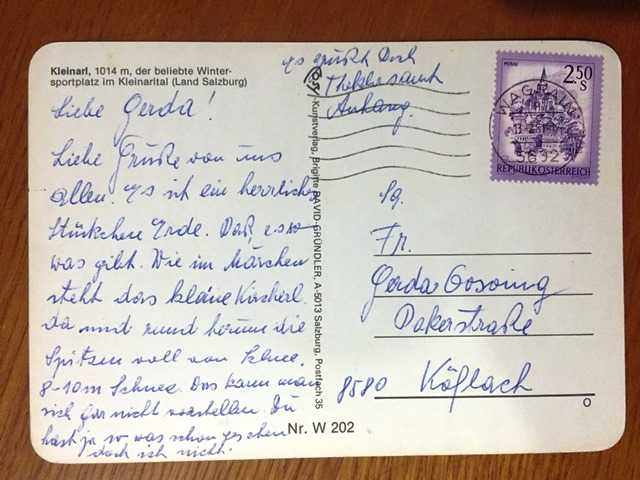 Kleinarl, 1014 m, der beliebte Winter-
sportplatz im Kleinarltal (Land Salzburg)
Liebe Gerda!
Liebe Grüße von uns
allen. Es ist ein herrliches
Stückchen Erde. Daß es so
was gibt. Wie im Märchen
steht das kleine Kircherl
da und rund herum die
Spitzen voll von Schnee.
8-10m Schnee. Das kann man
sich gar nicht vorstellen. Du
hast ja so was schon gesehen
doch ich nicht.
Es grüßt Dich
samt
Anhang.
-Kunstverlag, Brigitte DAVID-GRÜNDLER, A-5013 Salzburg, Postfach 35
Nr. W 202
2.50
S
REPUBLIK ÖSTERREICH
WAGRAIN
5602
Fr.
Gerda Gosoing
straße
8580 Köflach